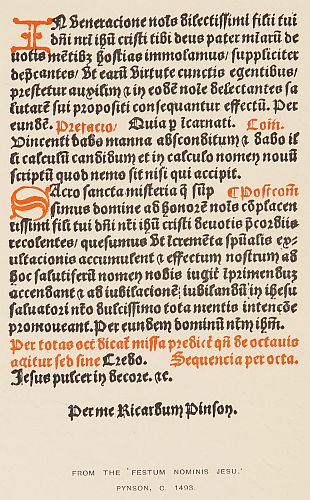 IN veneracione noĩs dilectissimi filii tui
dñi nr̃i ihũ cristi tibi deus pater miarũ de
uotis mẽtibz hostias immolamus/ suppliciter
dep̃cantes/ vt earũ virtute cunctis egentibus/
prestetur auxiliũ ⁊ in eodẽ noĩe delectantes sa
lutarẽ sui propositi consequantur effectũ. Per
eundẽ. Prefacio/ Quia p̱ ĩcarnati. Com̃.
Vincenti dabo manna absconditum ⁊ dabo il
li calculũ candidum et in calculo nomen nouũ
scriptũ quod nemo sit nisi qui accipit.
SAcro sancta misteria q̃ sũp ¶ Postcom̃
simus domine ad honorẽ noĩs cõplacen
tissimi filii tui dñi nr̃i ihũ cristi deuotis p̃cordiis
recolentes/ quesumus vt ĩcremẽta spũalis ex-
ultacionis accumulent ⁊ effectum nostrum ad
hoc salutiferũ nomen nobis iugit̃ ĩprimenduz
accendant ⁊ ad iubilacionẽ iubilandũ in ihesu
saluatori nr̃o dulcissimo tota mentis intencõe
promoueant. Per eundem dominũ nr̃m ihm̃.
Per totas oct̃ dicat̃ missa predict̃ qñ de octauis
agitur sed sine Credo. Sequencia per octa.
Jesus pulcer in decore. ⁊c.
Per me Ricardum Pinson.
FROM THE 'FESTUM NOMINIS JESU.'
PYNSON, C. 1493.